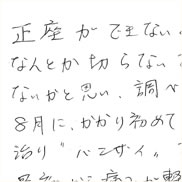 正座ができない
なんとか切らない
ないかと思い、調べ
8月に、かかり初めて
治り"バンザイ"